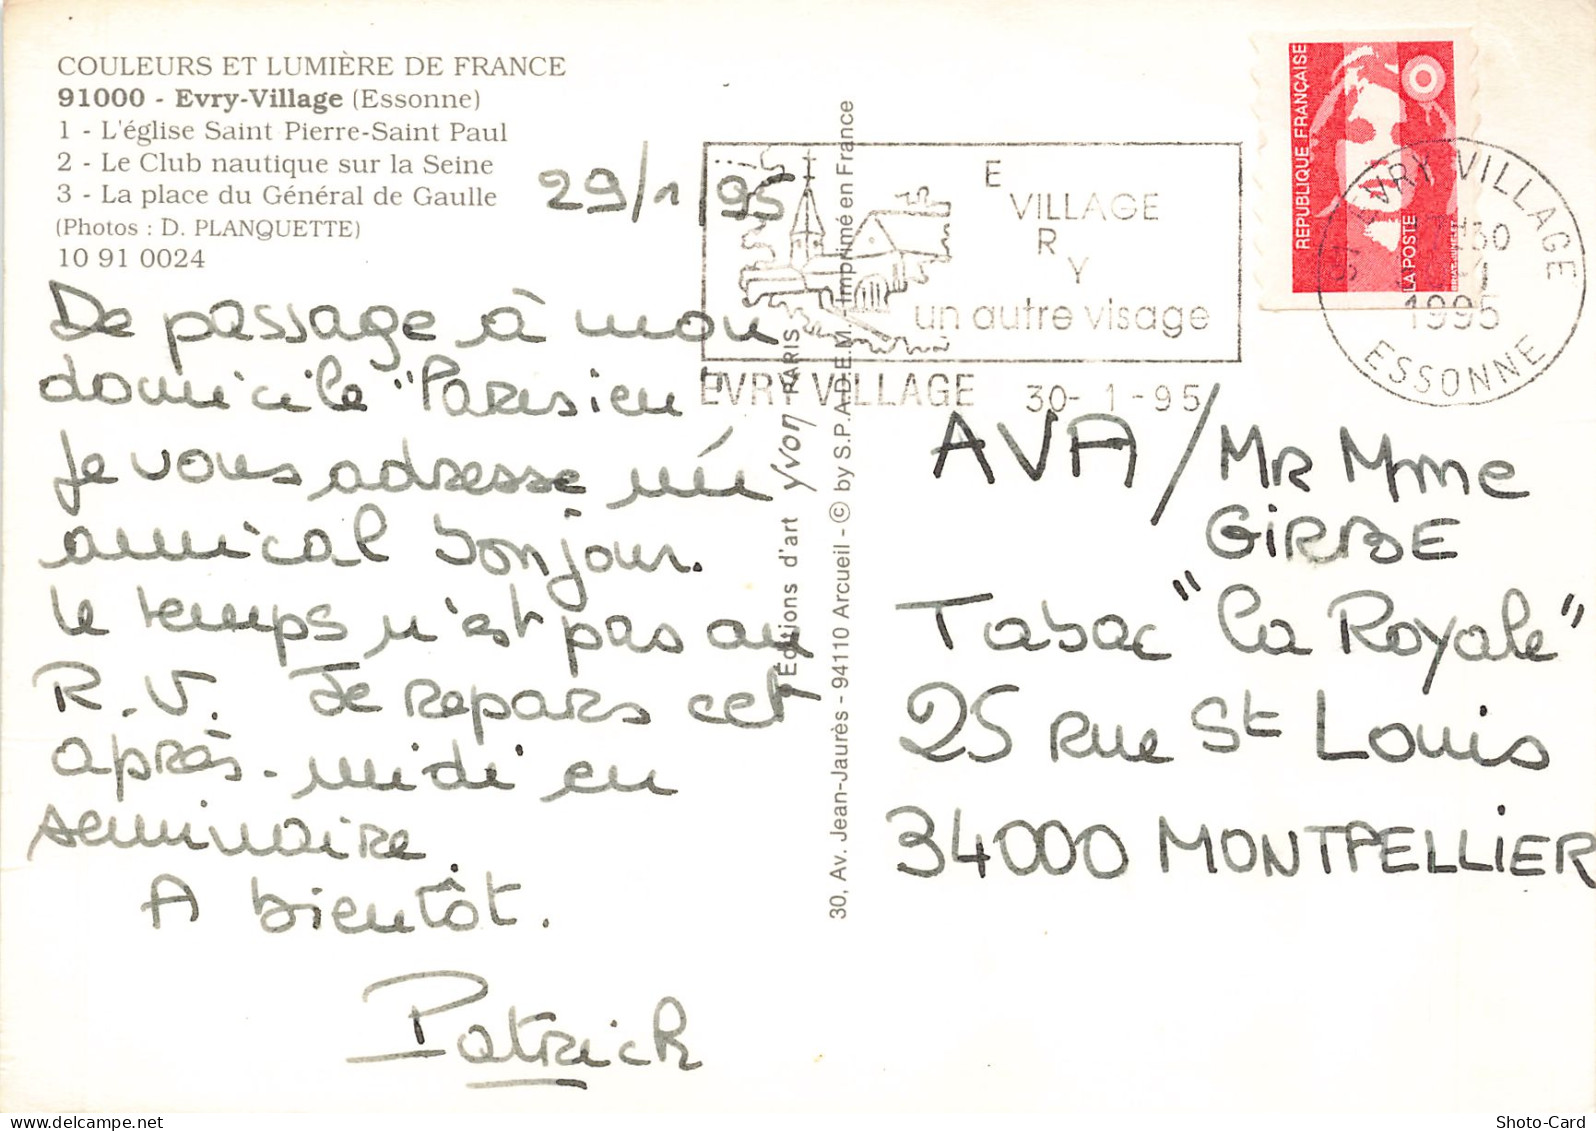 COULEURS ET LUMIÈRE DE FRANCE
91000 - Evry-Village (Essonne)
1 - L'église Saint Pierre-Saint Paul
2 - Le Club nautique sur la Seine
3 - La place du Général de Gaulle
(Photos : D. PLANQUETTE)
10 91 0024
29/1/95
De passage à mon
domicile "Parisien"
je vous adresse un
amical bonjour.
le temps n'est pas au
R.V. Je repars cet
après-midi en
seminaire.
A bientôt.
Patrick
Editions d'art yvon PARIS
30, Av. Jean-Jaurès - 94110 Arcueil - © by S.P.A.D.E.M. - Imprimé en France
E
VILLAGE
R
Y
un autre visage
EVRY VILLAGE 30-1-95
REPUBLIQUE FRANÇAISE
LA POSTE
EVRY VILLAGE
1995
ESSONNE
AVA / MR Mme
GIRBE
Tabac "La Royale"
25 Rue St Louis
34000 MONTPELLIER
Shoto-Card